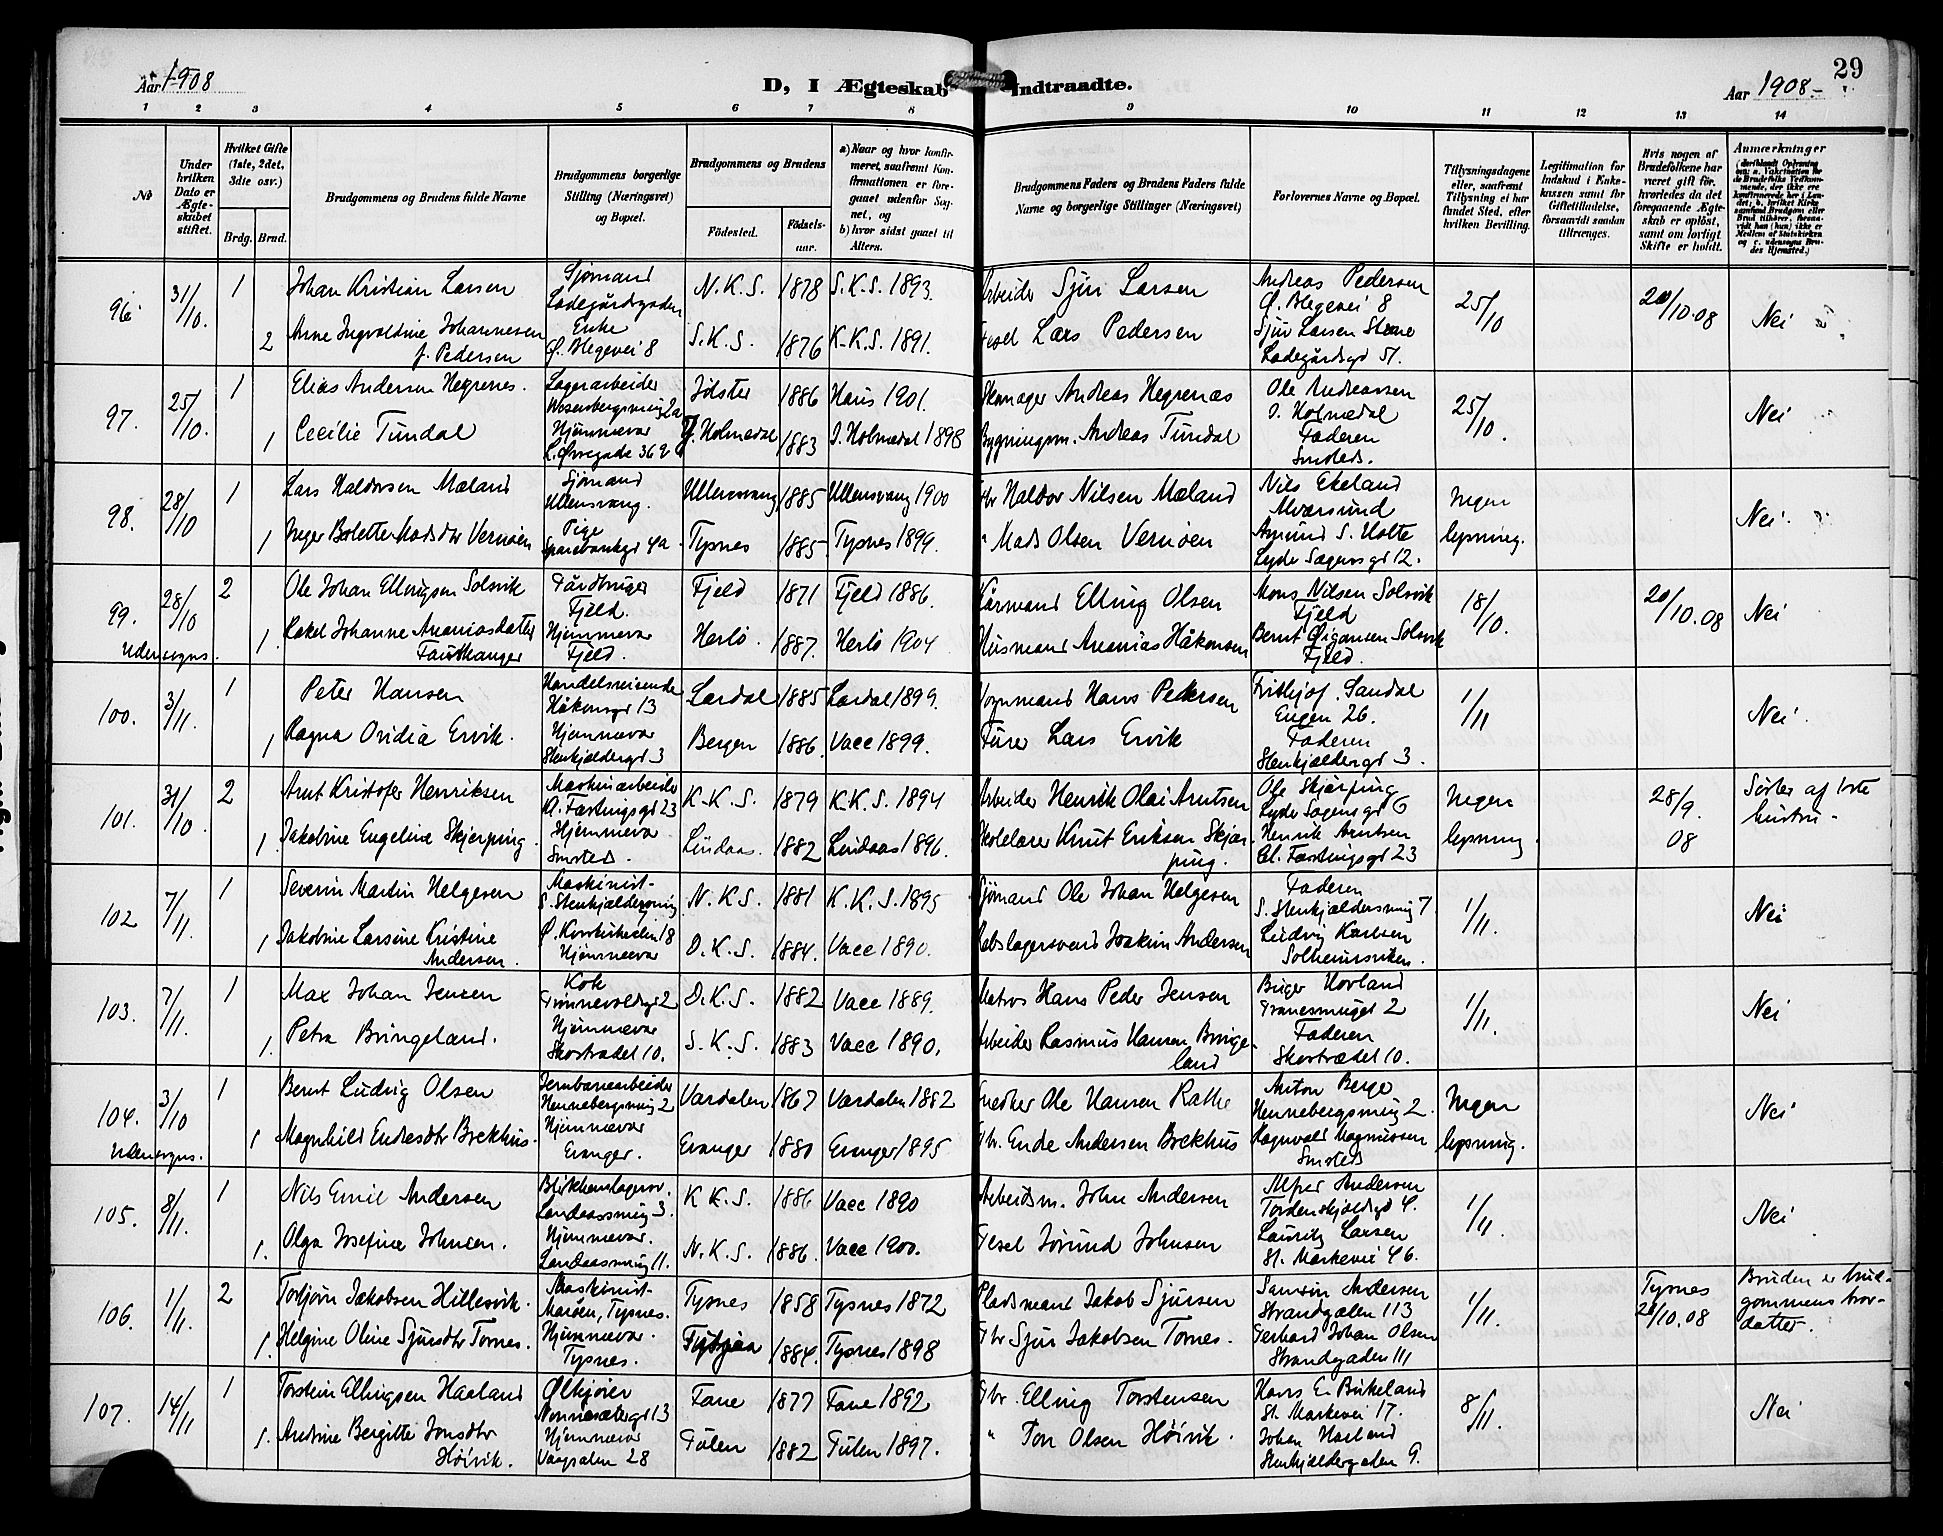 29
Aar 1908
D, I Ægteskab Indtraadte.
Aar 1908.-
1 2 3 4 5 6 7 8 9 10 11 12 13 14
No
Under hvilken Dato er Ægteskabet stiftet.
Hvilket Gifte (1ste, 2det, 3die osv.)
Brdg. Brud.
Brudgommens og Brudens fulde Navne
Brudgommens borgerlige Stilling (Næringsvei) og Bopæl.
Brudgommens og Brudens
Fødested. Fødselsaar.
a) Naar og hvor konfirmeret, saafremt Konfirmationen er foregaaet udenfor Sognet, og
b) hvor sidst gaaet til Alters.
Brudgommens Faders og Brudens Faders fulde Navne og borgerlige Stillinger (Næringsvei)
Forlovernes Navne og Bopæl.
Tillysningsdagene eller, saafremt Tillysning ei har fundet Sted, efter hvilken Bevilling.
Legitimation for Indskud i Enkekassen samt for Giftetilladelse, forsaavidt saadan tiltrænges.
Hvis nogen af Brudefolkene har været gift før, hvorledes da det foregaaende Ægteskab er opløst, samt om lovligt Skifte er holdt.
Anmærkninger
96 31/10. 1 Johan Kristian Larsen Sjømand N.K.S. 1878 S.K.S. 1893. Arbeider Sjur Larsen Andreas Pedersen 25/10 20/10.08 Nei
Ladegårdsgaden Ø. Blegevei 8
2 Anne Ingvoldine Johannesen Enke S.K.S. 1876 K.K.S. 1891. Lars Pedersen Sjur Larsen
f. Pedersen Ø. Blegevei 8 Ladegårdsgd 51.
97. 25/10. 1 Elias Andersen Hegrenes. Lagerarbeider Jølster 1886 Haus 1901. Andreas Hegrenæs Ole Andreassen 25/10. Nei
Rosenbergsmug 2a Y. Holmedal
1 Cecilie Tundal Hjemmevær Y. Holmedal 1883 Y. Holmedal 1898 Bygningsm. Andreas Tundal Faderen
L. Øvregade 36 Smsteds.
98. 28/10 1 Lars Haldorsen Mæland Sjømand Ullensvang 1885 Ullensvang 1900 Gbr Haldor Nilsen Mæland Nils Ekeland Ingen Nei.
Ullensvang. Alversund
1 Inger Bolette Madsdtr Vernøen Pige Tysnes 1885 Tysnes 1899. " Mads Olsen Vernøen Amund S. Holte lysning.
Sparebankgd 4a Lyder Sagensgd 12.
99. 28/10 2 Ole Johan Ellingsen Solsvik Gårdbruger Fjeld 1871 Fjeld 1886. Kårmand Elling Olsen Mons Nilsen Solsvik 18/10. 20/10.08 Nei
Fjeld. Fjeld
1. Rakel Johanne Ananiasdatter Hjemmevær Herlø. 1887. Herlø 1904 Husmand Ananias Håkonsen Bernt Solsvik
Udensogns. Fjeld. Fjeld.
100. 3/11. 1 Peter Hansen Handelsreisende Lardal 1885 Lardal 1899. Vognmand Hans Pedersen Frithjof Sandal 1/11 Nei.
Håkonsgd 13 Engen 26.
1 Ragna Ovidia Ervik. Hjemmevær Bergen 1886. Vacc 1899. Lars Ervik Faderen
Stenkjeldergd 3 Stenkjeldergd 3.
101. 31/10. 2 Arnt Kristofer Henriksen Maskinarbeider K.K.S. 1879 K.K.S. 1894 Arbeider Henrik Olai Arntsen Ole Skjerping Ingen 28/9. 08 Søster af 1ste hustru.
Gl. Fæstingsgd 23 Lyder Sagensgd 6
1. Jakobine Engeline Skjerping. Hjemmevær Lindaas. 1882 Lindaas 1896. Skolelærer Knut Eriksen Skjerping. Henrik Arntsen lysning.
Smsteds. Gl. Fæstingsgd 23
102 7/11. 1 Severin Martin Helgesen Maskinist N.K.S. 1881 K.K.S. 1895 Sjømand Ole Johan Helgesen Faderen 1/11. Nei
S. Stenkjeldersmug S. Stenkjeldersmug 7.
1 Jakobine Larsine Kristine Hjemmevær D.K.S. 1884. Vacc 1890. Rebslagersvend Joakim Andersen Ludvig Karlsen
Andersen. Solheimsviken.
103. 7/11. 1 Max Johan Jensen Kok D.K.S. 1882 Vacc 1889. Matros Hans Peder Jensen Birger Hovland 1/11. Nei
1. Petra Bringeland. Hjemmevær S.K.S. 1883 Vacc 1890. Arbeider Rasmus Hansen Bringeland Faderen
Skostrædet 10. Skostrædet 10.
104. 3/10 1 Bernt Ludvig Olsen Jernbanearbeider Værdalen 1867 Værdalen 1882 Ole Hansen Anton Berge Ingen Nei
Hennebergsmug 2 Hennebergsmug 2.
1 Magnhild Endresdtr Brekhus. Hjemmevær Evanger 1880 Evanger 1895 Gbr. Ende Andersen Brekhus Ragnvald Magnussen lysning.
Udensogns. Evanger. Smsteds
105. 8/11. 1 Nils Emil Andersen K.K.S. 1886 Vacc 1890 Arbeidsm. John Andersen Alfred Andersen 1/11. Nei
Landaassmug 3. Tordenskjoldsgd 4.
1. Olga Josefine Johnsen. Hjemmevær. N.K.S. 1886. Vacc 1900. Jørund Johnsen Lauritz Larsen
Landaassmug 11. St. Markevei 46.
106. 1/11. 2 Torbjørn Jakobsen Hillesvik. Maskinist Tysnes 1858 Tysnes 1872 Pladsmand Jakob Sjursen Samson Andersen 1/11. Tysnes Bruden er brudgommens brordatter.
Tysnes. Strandgaden 113 /10.08
1. Helgine Oline Sjursdtr Tornes. Hjemmevær. 1884. Tysnes 1898 Gbr Sjur Jakobsen Tornes. Gerhard Johan Olsen
Tysnes. Strandgaden 111
107. 14/11 1 Torstein Ellingsen Haaland Ølkjører Fane 1877 Fane 1892 Gbr. Elling Torstensen Hans E. Birkeland 8/11. Nei
Nonnesætergd 13 St. Markevei 17.
1. Andrine Bergitte Jonsdtr Hjemmevær Gulen 1882 Gulen 1897. " Jon Olsen Høivik. Johan Haaland
Høivik. 28 Stenkjeldergaden 9.